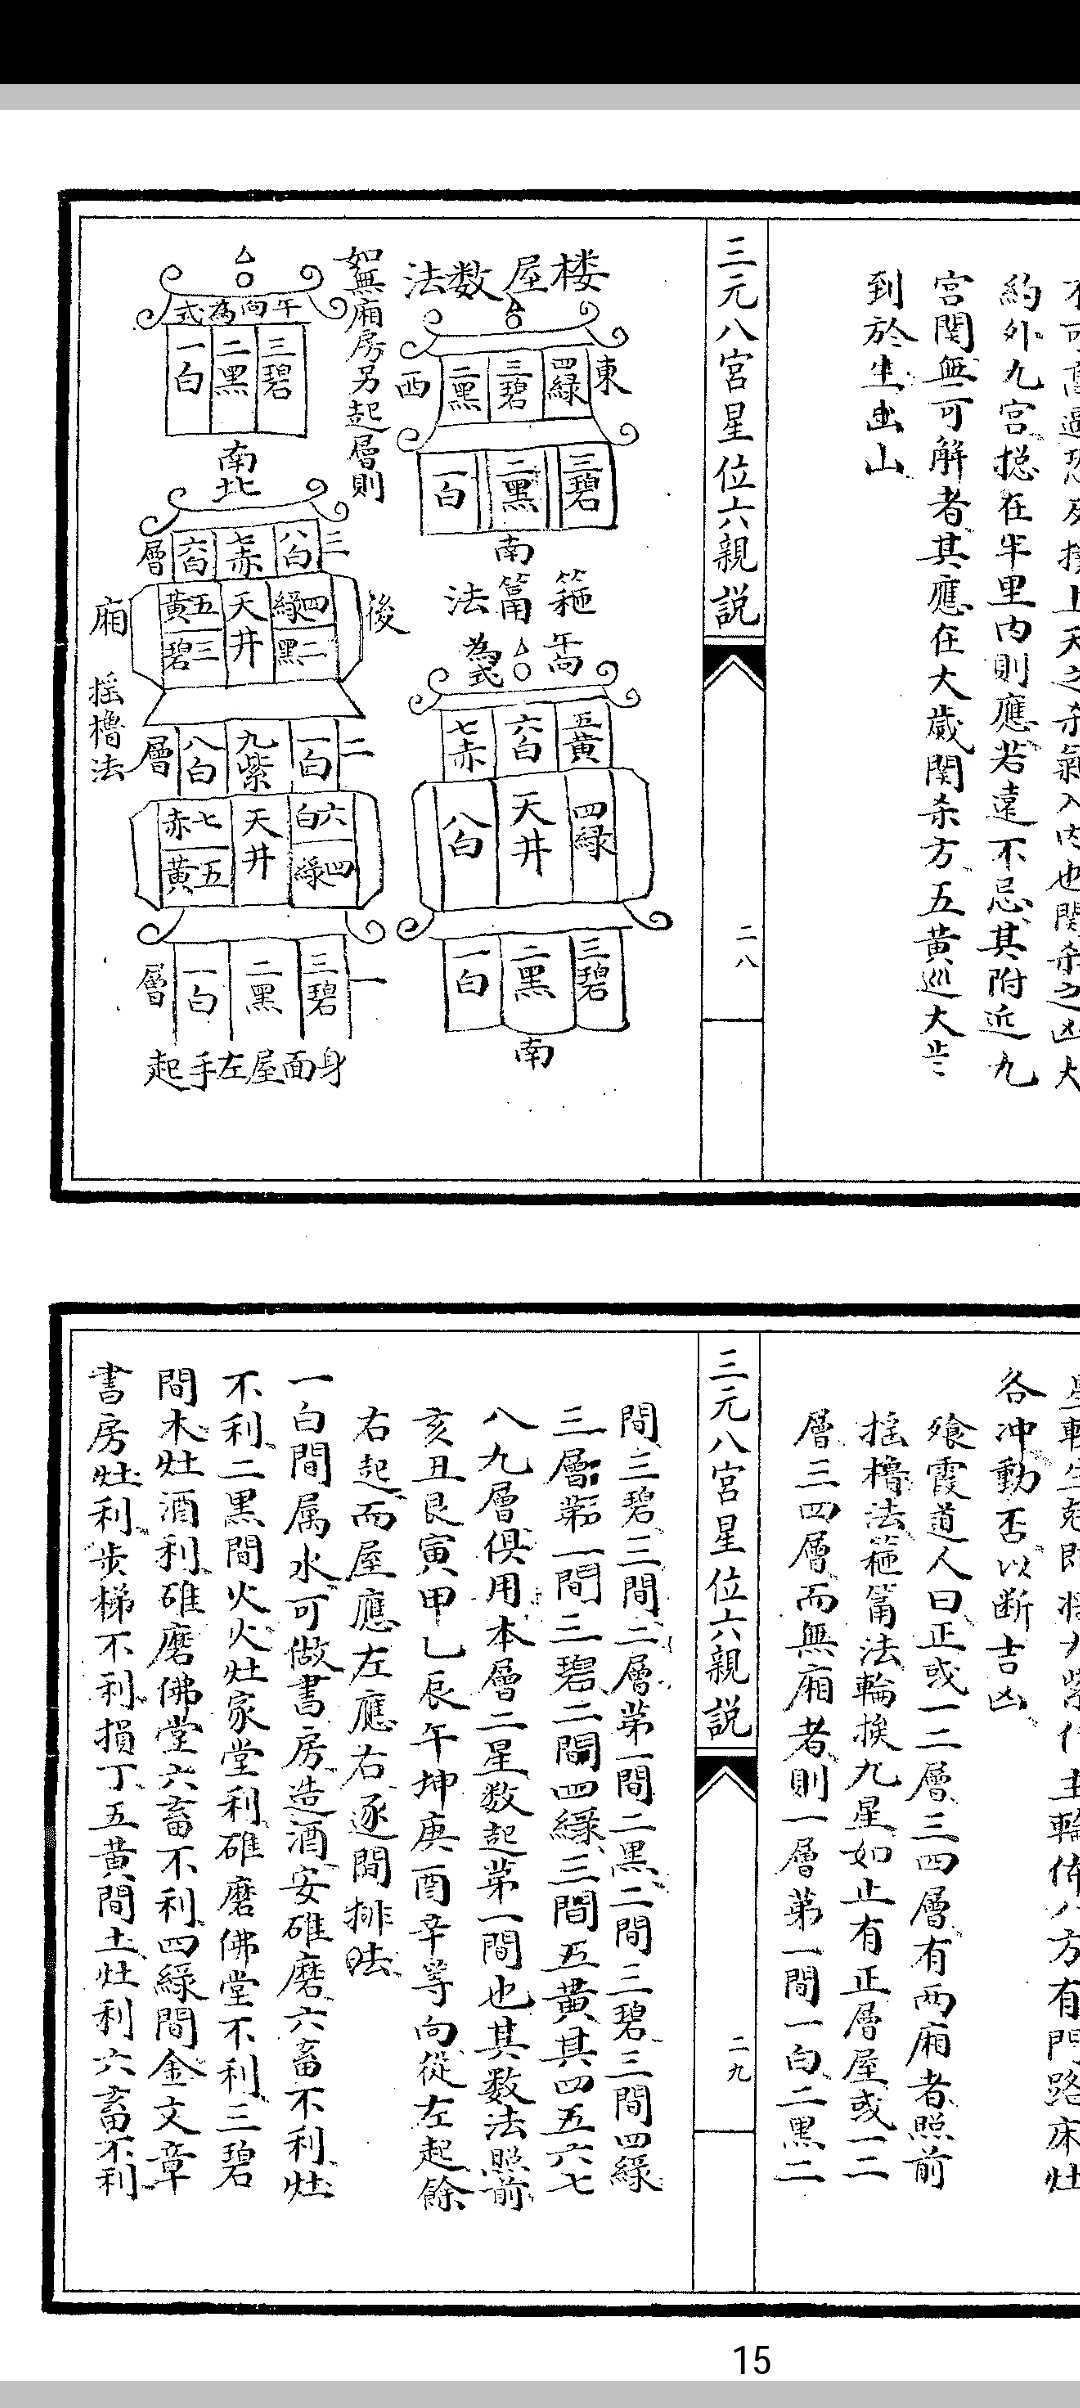 約外九宮摠在半里内則應若遠不忌其附近九
宮関無可解者其應在大歲関杀方五黄巡大
到於坐出山
三元八宮星位六親説
二八
楼屋数法
東
四緑
三碧
二黑
西
三碧
二黑
一白
南
箍筩法
午向為式
五黄
六白
七赤
四緑
天井
八白
三碧
二黑
一白
南
如無廂房另起層則
午向為式
三碧
二黑
一白
南
北
三層
八白
七赤
六白
後廂
四緑
二黑
天井
五黄
三碧
摇櫓法
二層
一白
九紫
八白
六白
四緑
天井
七赤
五黄
一層
三碧
二黑
一白
身面屋左手起
各冲動否以断吉凶
飡霞道人曰正或一二層三四層有两廂者照前
摇櫓法箍筩法輪挨九星如止有正層屋或一二
層三四層而無廂者則一層第一間一白二黑二
三元八宮星位六親説
二九
間三碧三間二層第一間二黑二間三碧三間四緑
三層第一間三碧二間四緑三間五黄其四五六七
八九層俱用本層二星数起第一間也其数法照前
亥丑艮寅甲乙辰午坤庚酉辛等向從左起餘
右起而屋應左應右逐間排法
一白間属水可做書房造酒安碓磨六畜不利灶
不利二黑間火火灶家堂利碓磨佛堂不利三碧
間木灶酒利碓磨佛堂六畜不利四緑間金文章
書房灶利步梯不利損丁五黄間土灶利六畜不利
15